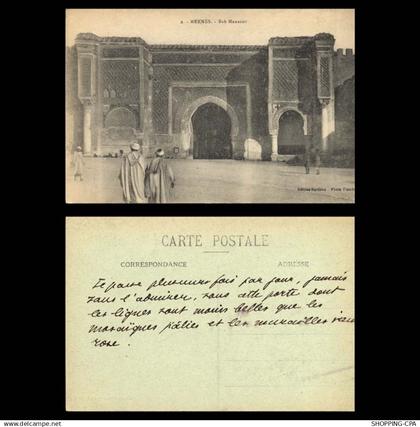 2 - MEKNÈS. - Bab Mansour
CARTE POSTALE
CORRESPONDANCE
ADRESSE
Je passe plusieurs fois par jour, jamais
sans l'admirer, sous cette porte dont
les lignes sont moins belles que les
mosaïques pâlies et les murailles
rose.
WWW.SHOPPING-CPA.COM
SHOPPING-CPA